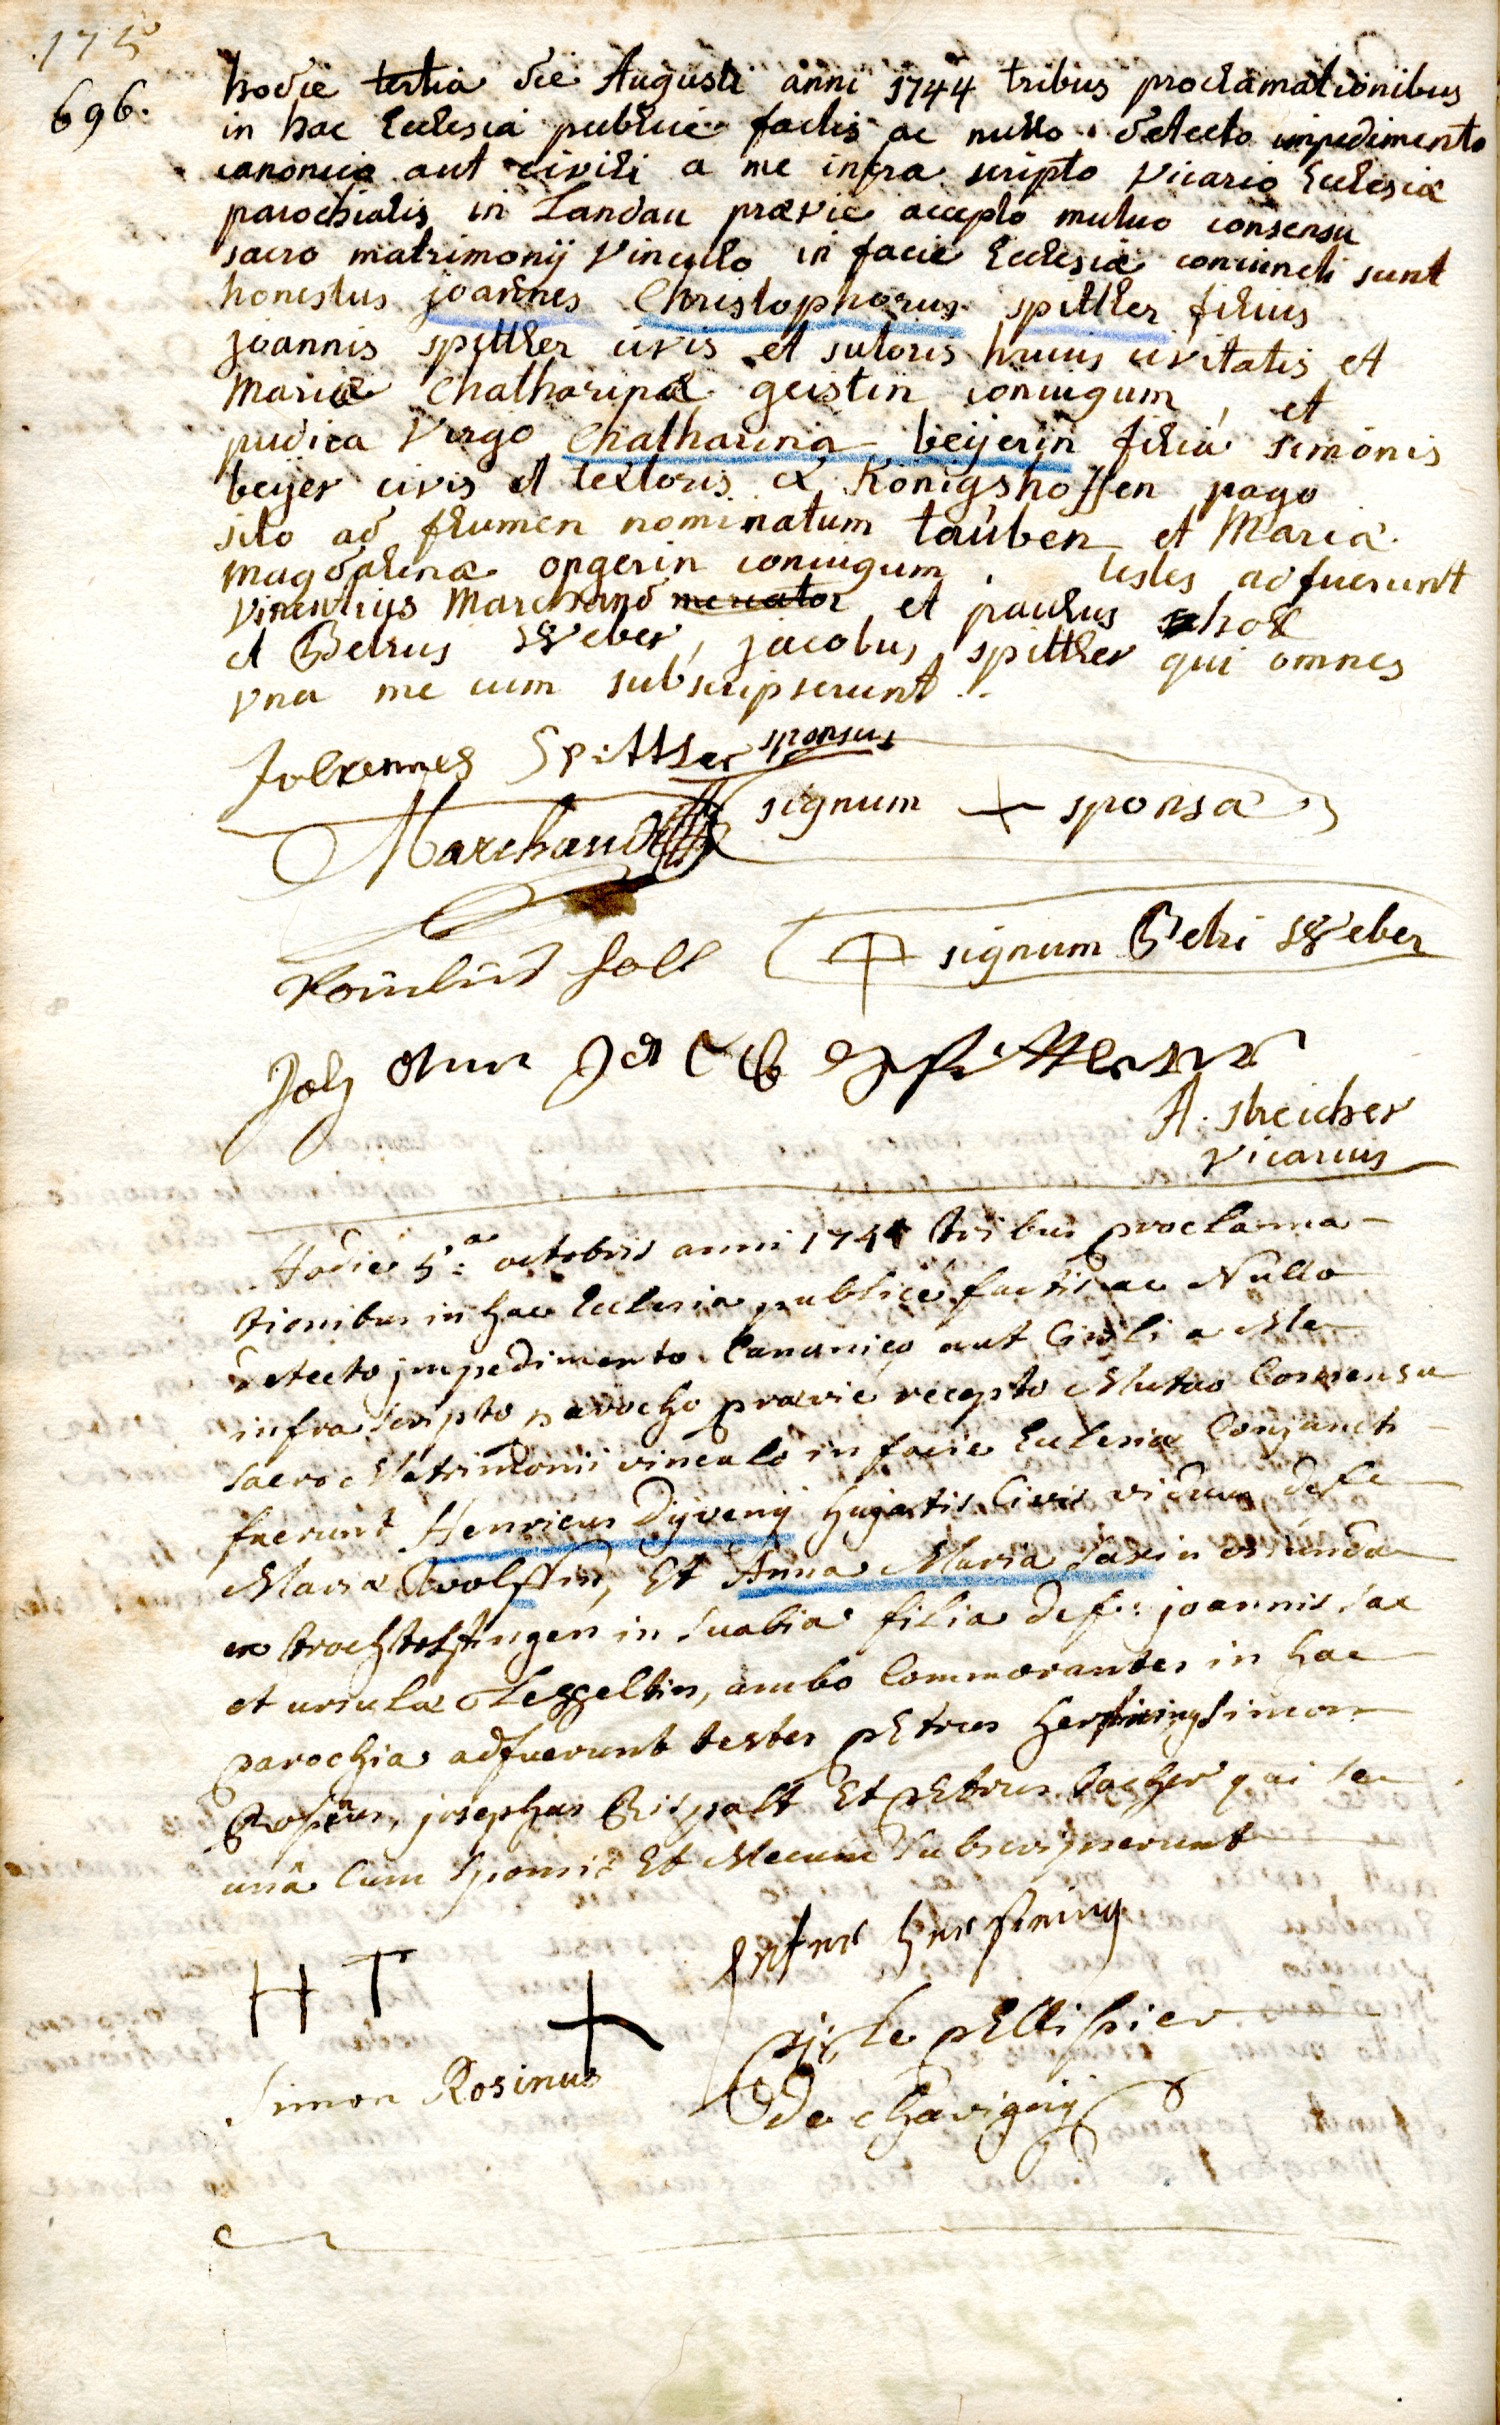 175
696.
hodie tertia die Augusti anni 1744 tribus proclamationibus
in hac Ecclesia publice factis ac nullo detecto impedimento
canonico aut civili a me infra scripto Vicario Ecclesiæ
parochialis in Landau prævie accepto mutuo consensu
sacro matrimonij Vinculo in facie Ecclesiæ coniuncti sunt
honestus joannes Christophorus spittler filius
joannis spittler civis et sutoris huius civitatis et
Mariæ Chatharinæ geistin coniugum, et
pudica Virgo Chatharina beijerin filia simonis
beijer civis et textoris ex Königshoffen pago
sito ad flumen nominatum tauben et Mariæ
Magdalenæ opgerin coniugum. testes adfuerunt
Vincentius Marchand mercator et paulus schol
et Petrus Weber, jacobus spittler qui omnes
vna me cum subscripserunt.
Johannes Spittler sponsus
signum + sponsæ
Marchand
Paulus soll
signum Petri Weber
Joh ann Jacob spittler
A. streicher
Vicarius
Hodie 5.a octobris anni 1744 tribus proclama-
tionibus in hac Ecclesia publice factis ac Nullo
detecto jmpedimento Canonico aut Civili a Me
infra scripto parocho prævie recepto Mutuo Consensu
sacro Matrimonii vinculo in facie Ecclesiæ Conjuncti
fuerunt Henricus Dijveng hujatis Civis viduus defc
Mariæ Wolffin, Et Anna Maria saxin oriunda
ex trochtelfingen in suabia filia def: joannis sac
et ursulæ, ambo Commorantes in hac
parochia adfuerunt testes pEtrus Herffining simon
Rosinus, josephus Rispalt Et pEtrus Lacher qui se
unâ Cum sponsis Et Mecum subscripserunt
H T
+
Peter Herffining
le pEllissier
De chavignij
Simon Rosinus